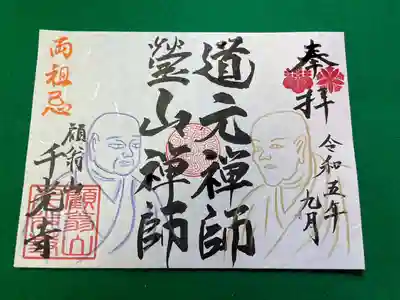 奉拝
令和五年
九月
道元禅師
瑩山禅師
両祖忌
顧翁山
千光寺